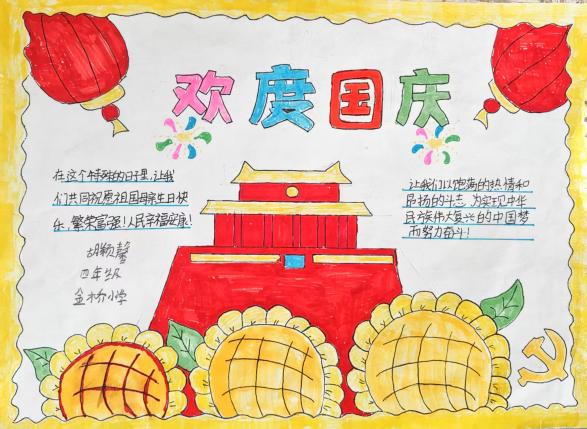 欢度国庆
在这个特殊的日子里,让我
们共同祝愿祖国母亲生日快
乐,繁荣富强!人民幸福安康!
胡颖馨
四年级
金桥小学
让我们以饱满的热情和
昂扬的斗志,为实现中华
民族伟大复兴的中国梦
而努力奋斗!